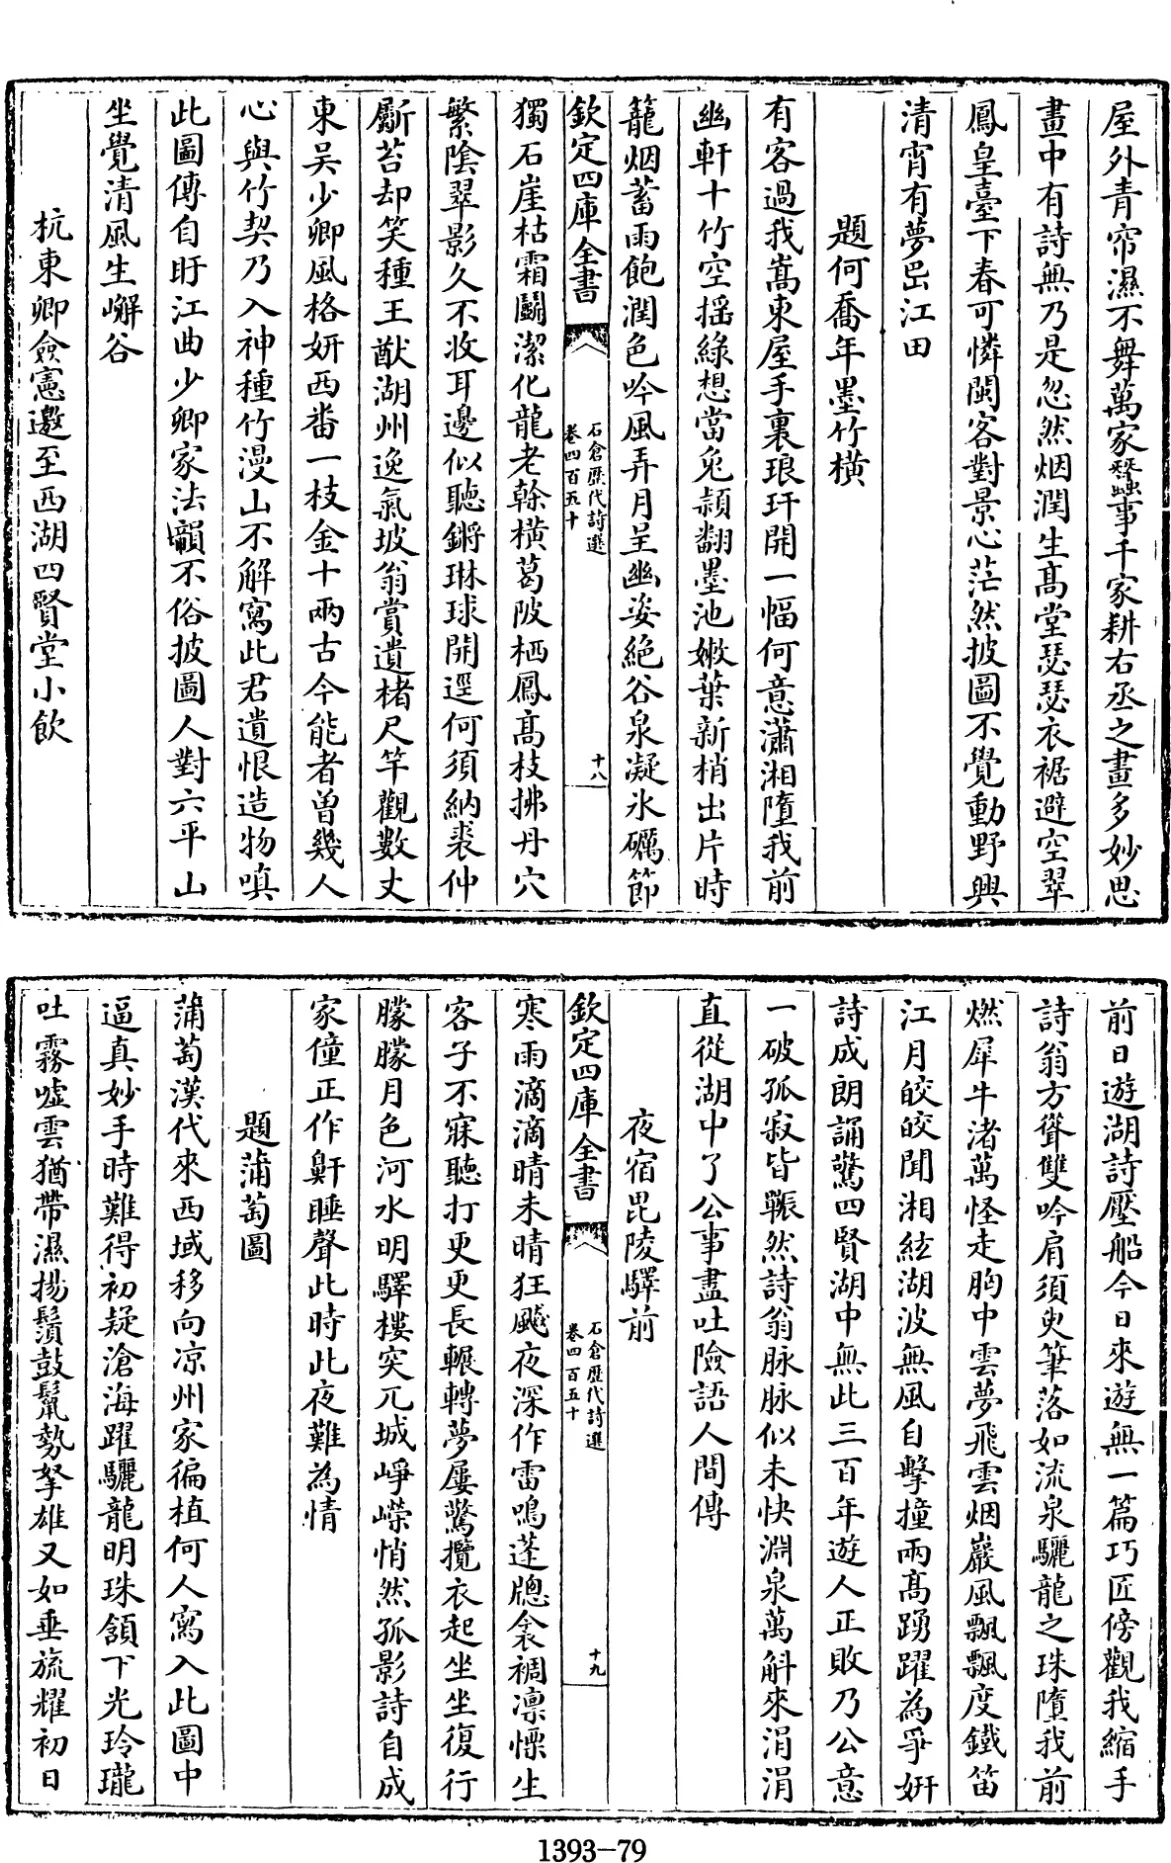 屋外青帘濕不舞萬家蠶事千家耕右丞之畫多妙思
畫中有詩無乃是忽然烟潤生髙堂瑟瑟衣裾避空翠
鳳皇臺下春可憐閩客對景心茫然披圖不覺動野興
清宵有夢岀江田
題何喬年墨竹横
有客過我嵩東屋手裏琅玕開一幅何意瀟湘墮我前
幽軒十竹空揺緑想當兎頴翻墨池嫩葉新梢出片時
籠烟蓄雨飽潤色吟風弄月呈幽姿絶谷泉凝氷礪節
欽定四庫全書
石倉歴代詩選
卷四百五十
十八
獨石崖枯霜鬭潔化龍老榦横葛陂栖鳳髙枝拂丹穴
繁隂翠影久不收耳邊似聽鏘琳球開逕何須納裘仲
斸苔却笑種王猷湖州逸氣坡翁賞遺楮尺竿觀數丈
東吴少卿風格妍西畨一枝金十兩古今能者曽幾人
心與竹契乃入神種竹漫山不解寫此君遺恨造物嗔
此圖傳自盱江曲少卿家法韻不俗披圖人對六平山
坐覺清風生嶰谷
杭東卿僉憲邀至西湖四賢堂小飲
前日遊湖詩壓船今日來遊無一篇巧匠傍觀我縮手
詩翁方聳雙吟肩須臾筆落如流泉驪龍之珠墮我前
燃犀牛渚萬怪走胸中雲夢飛雲烟巖風飄飄度鐵笛
江月皎皎聞湘絃湖波無風自擊撞兩髙踴躍為爭妍
詩成朗誦驚四賢湖中無此三百年遊人正敗乃公意
一破孤寂皆囅然詩翁脉脉似未快淵泉萬斛來涓涓
直從湖中了公事盡吐險語人間傳
夜宿毘陵驛前
欽定四庫全書
石倉歴代詩選
卷四百五十
十九
寒雨滴滴晴未晴狂飈夜深作雷鳴蓬牕衾裯凛慄生
客子不寐聽打更更長輾轉夢屢驚攬衣起坐坐復行
朦朦月色河水明驛樓突兀城崢嶸悄然孤影詩自成
家僮正作鼾睡聲此時此夜難為情
題蒲萄圖
蒲萄漢代來西域移向凉州家徧植何人寫入此圖中
逼真妙手時難得初疑滄海躍驪龍明珠頷下光玲瓏
吐霧噓雲猶帶濕揚鬚鼓鬛勢拏雄又如垂旒耀初日
1393-79